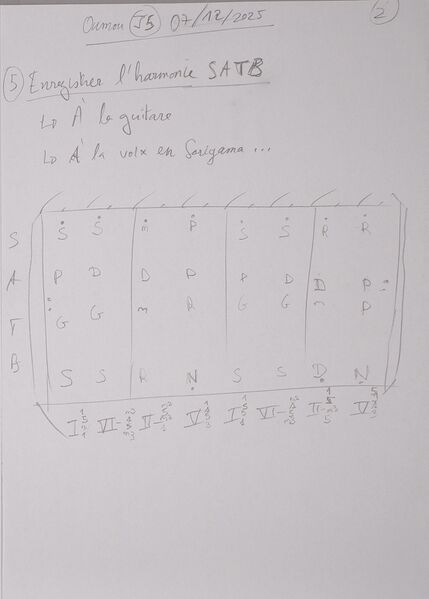 Oumou J5 07/12/2025
2
5 Enregistrer l'harmonie SATB
↳ À la guitare
↳ À la voix en Sarigama ...
S Ṡ Ṡ ṁ Ṗ Ṡ Ṡ Ṙ Ṙ
A P D D P P D D P
T G G m R G G m P
B S S R Ṇ S S Ḍ Ṇ
I VI- II- V I VI- II- V